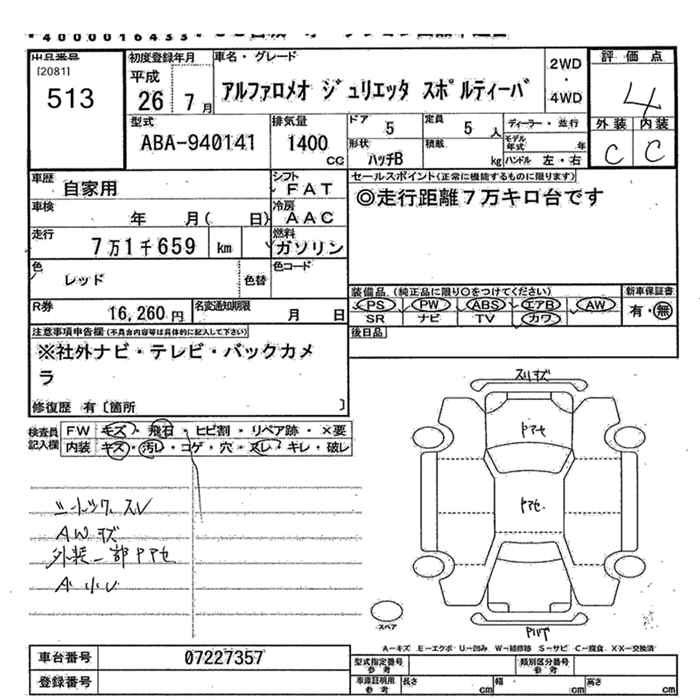 4000016433
出品番号 初度登録年月 車名・グレード 2WD・4WD 評価点
[2081]
513 平成26年7月 アルファロメオ ジュリエッタ スポルティーバ 4
型式 排気量 ドア 5 定員 5人 ディーラー・並行 外装 内装
ABA-940141 1400cc 形状 ハッチB 積載 kg モデル年式 年 ハンドル 左・右 C C
車歴 自家用 シフト FAT セールスポイント(正常に機能するものに限ります)
車検 年 月( 日) 冷房 AAC ◎走行距離7万キロ台です
走行 7万1千659 km 燃料 ガソリン
色 レッド 色替 色コード
装備品(純正品に限り○をつけてください) 新車保証書
R券 16,260円 名変通知期限 月 日 PS PW ABS エアB AW 有・無
SR ナビ TV カワ
注意事項申告欄(不具合内容等は具体的に記入して下さい) 後日品
※社外ナビ・テレビ・バックカメ
ラ
修復歴 有〔箇所 〕
検査員記入欄 FW キズ・飛石・ヒビ割・リペア跡・×要
内装 キズ・汚レ・コゲ・穴・スレ・キレ・破レ
スリキズ
トアセ
トアセ
AWキズ
外装一部トアセ
スペア
A－キズ E－エクボ U－凹み W－補修跡 S－サビ C－腐食 XX－交換済
車台番号 07227357 型式指定番号 参考 類別区分番号 参考
登録番号 車庫証明用 参考 長さ cm 幅 cm 高さ cm